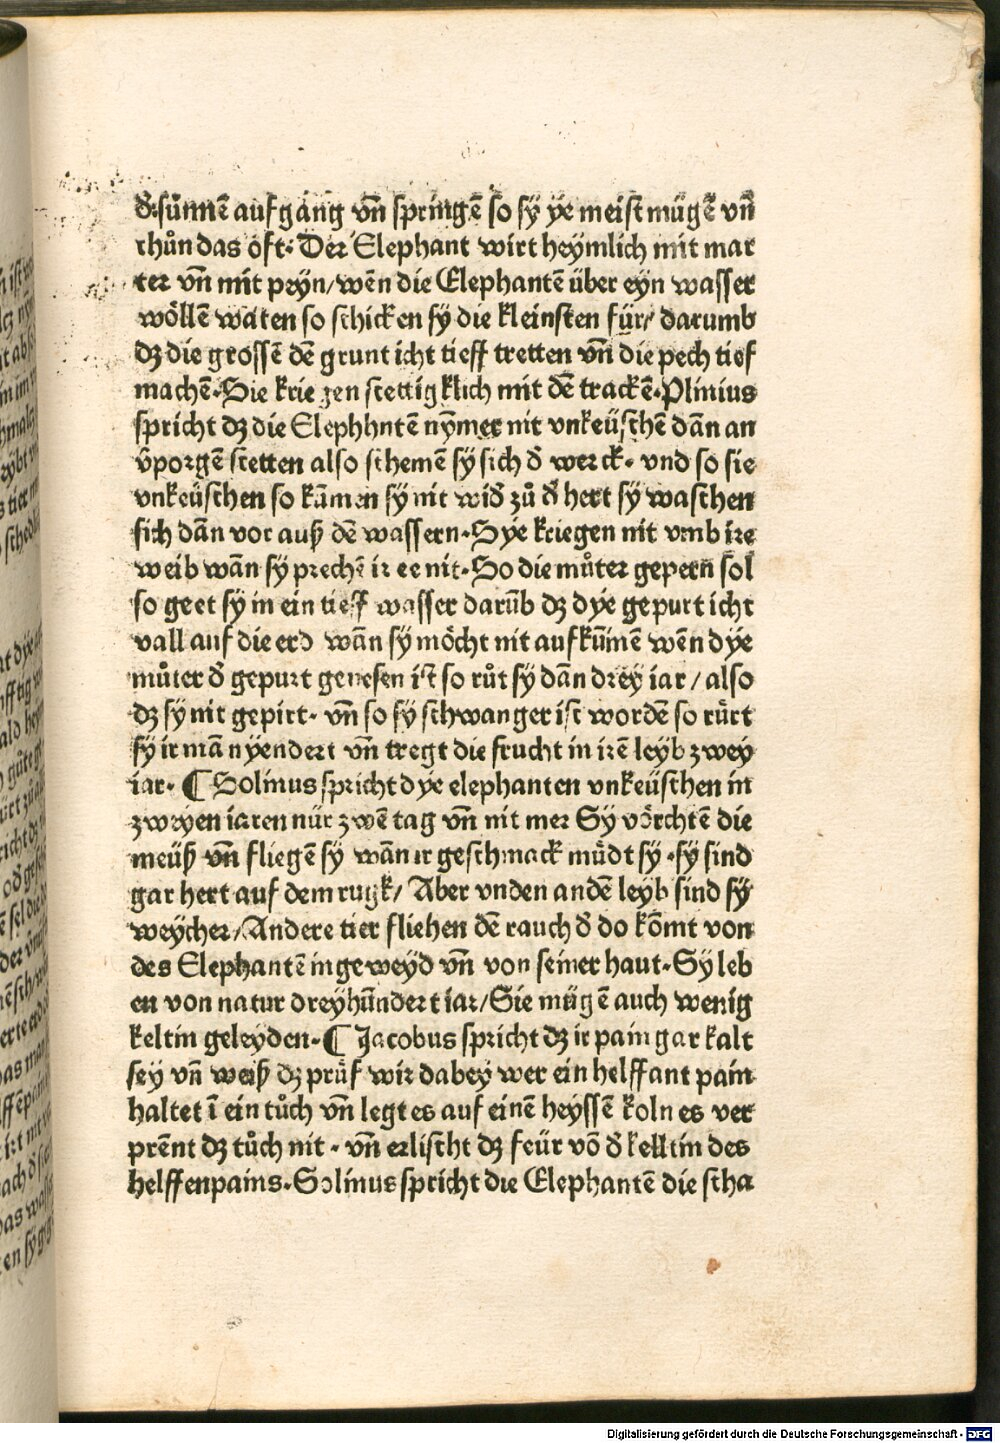 d᷑ sünnē aufgang vn̄ springē so sÿ ye meist mügē vn̄
thůn das oft. Der Elephant wirt heymlich mit mar
ter vn̄ mit peyn/wēn die Elephantē über eyn wasser
wöllē waten so schicken sÿ die kleinsten für/ darumb
dʒ die grossē dē grunt icht tieff tretten vn̄ die pech tief
machē. Sie kriegen stettigklich mit dē trackē. Plinius
spricht dʒ die Elephhntē nymer nit vnkeüschē dān an
v̄porgē stetten also schemē sÿ sich d᷑ werck. vnd so sie
vnkeüschen so kūmen sÿ nit wid᷑ zů d᷑ hert sÿ waschen
sich dān vor auß dē wassern. Sye kriegen nit vmb ire
weib wān sÿ prechē ir ee nit. So die můter gepern̄ sol
so geet sÿ in ein tieff wasser darūb dʒ dye gepurt icht
vall auf die erd wān sÿ möcht nit aufkūmē wēn dye
můter d᷑ gepurt genesen ist so růt sÿ dān dreÿ iar / also
dʒ sÿ nit gepirt. vn̄ so sÿ schwanger ist wordē so rürt
sÿ ir mān nyendert vn̄ tregt die frucht in irē leyb zwey
iar. ¶ Solinus spricht dye elephanten vnkeüschen in
zweyen iaren nür zwē tag vn̄ nit mer Sy vörchtē die
meüß vn̄ fliegē sÿ wān ir geschmack müdt sÿ . sÿ sind
gar hert auf dem rugk/ Aber vnden an dē leyb sind sÿ
weycher/Andere tier fliehen dē rauch d᷑ do kōmt von
des Elephantē ingeweyd vn̄ von seiner haut. Sy leb
en von natur dreyhūndert iar/Sie mügē auch wenig
keltin geleyden. ¶ Jacobus spricht dʒ ir pain gar kalt
sey vn̄ weiß dʒ prüf wir dabey wer ein helffant pain
haltet ī ein tůch vn̄ legt es auf einē heyssē koln es ver
prēnt dʒ tůch nit . vn̄ erlischt dʒ feür vō d᷑ kelltin des
helffenpains. Solinus spricht die Elephantē die scha
Digitalisierung gefördert durch die Deutsche Forschungsgemeinschaft - DFG